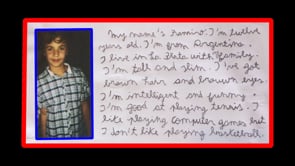 My name's Ramiro. I'm twelve
years old. I'm from Argentina.
I live in La Plata with family.
I'm tall and slim. I've got
brown hair and brown eyes.
I'm intelligent and funny.
I'm good at playing tennis. I
like playing computer games but
I don't like playing basketball.